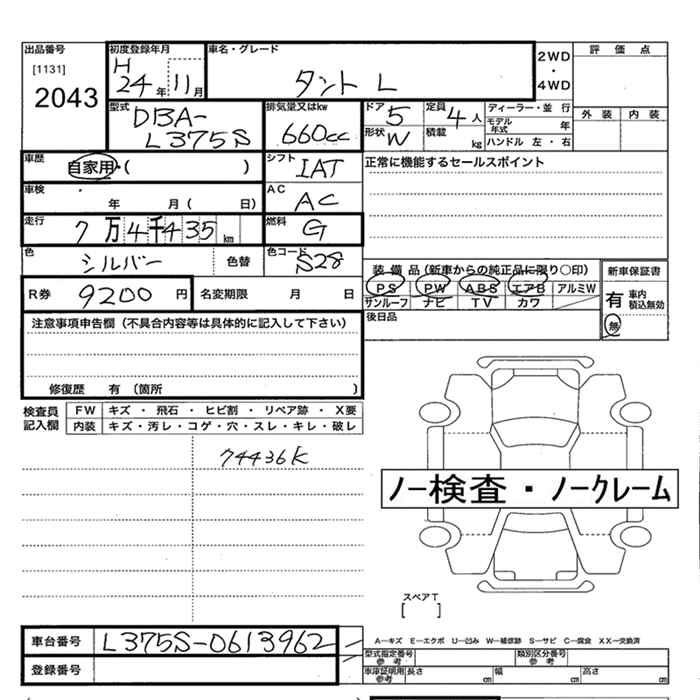 出品番号 初度登録年月 車名・グレード 2WD 評価点
[1131] H タント L ・
2043 24年11月 4WD
型式 排気量又はkw ドア 定員 ディーラー・並行 外装 内装
DBA- 660cc 5 4人 モデル年式 年
L375S 形状 W 積載 kg ハンドル 左・右
車歴 自家用・( ) シフト IAT 正常に機能するセールスポイント
車検 年 月( 日) AC AC
走行 7万4千435km 燃料 G
色 シルバー 色替 色コード S28
装備品(新車からの純正品に限り○印) 新車保証書
R券 9200円 名変期限 月 日 PS PW ABS エアB アルミW 有 車内積込無効
サンルーフ ナビ TV カワ
注意事項申告欄(不具合内容等は具体的に記入して下さい) 後日品 無
修復歴 有(箇所 )
検査員記入欄 FW キズ・飛石・ヒビ割・リペア跡・X要
内装 キズ・汚レ・コゲ・穴・スレ・キレ・破レ
74436K
ノー検査・ノークレーム
スペアT
[ ]
車台番号 L375S-0613962 A−キズ E−エクボ U−凹み W−補修跡 S−サビ C−腐食 XX−交換済
登録番号 型式指定番号 参考 類別区分番号 参考
車庫証明用 参考 長さ cm 幅 cm 高さ cm